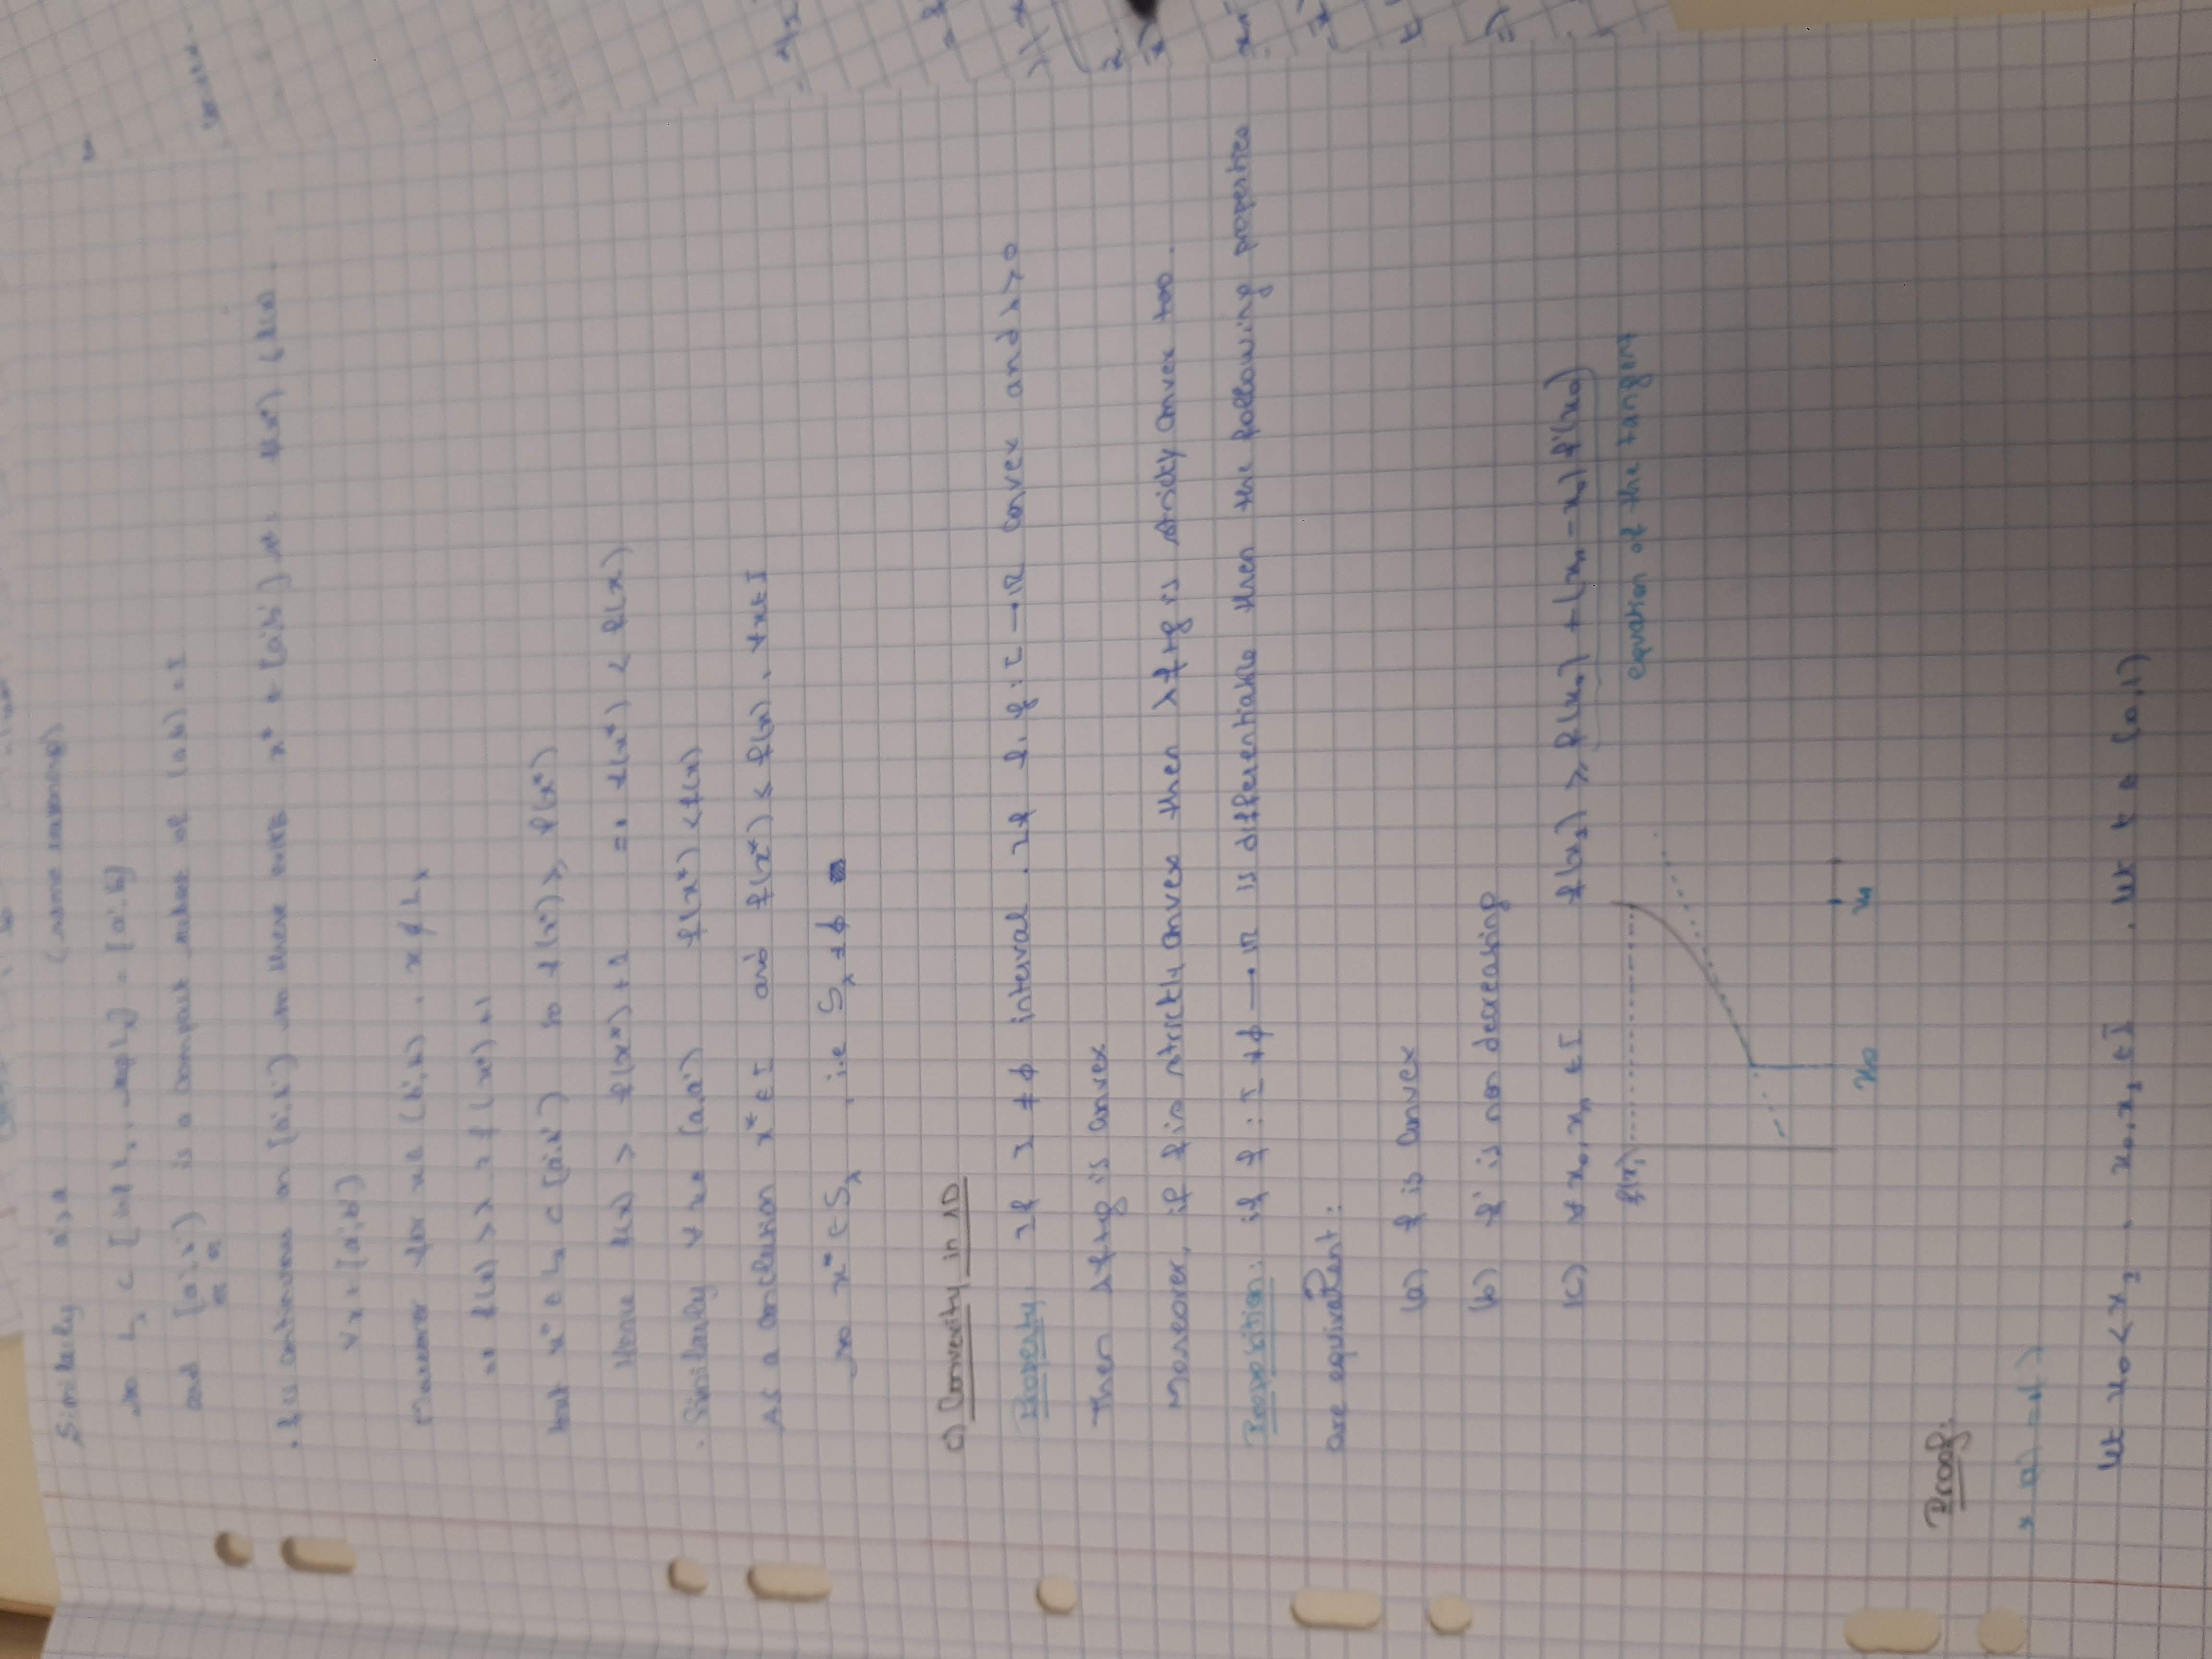 Similarly a'>a (same reasoning)
so L_λ ⊂ [inf L_λ, sup L_λ] = [a',b']
and [a',b'] is a compact subset of (a,b) = I
. f is continuous on [a',b'] so there exists x* ∈ [a',b'] st: f(x*) ≤ f(x)
∀x ∈ [a',b']
Moreover for x ∈ (b',b), x ∉ L_λ
=> f(x) > λ ≥ f(x⁰)+1
but x⁰ ∈ L_λ ⊂ [a',b'] so f(x⁰) ≥ f(x*)
Hence f(x) > f(x*) + 1 => f(x*) < f(x)
. Similarly ∀ x ∈ (a,a') f(x*) < f(x)
As a conclusion x* ∈ I and f(x*) ≤ f(x), ∀x∈I
so x* ∈ S_λ, i.e S_λ ≠ ∅
c) Convexity in 1D
Property: If I ≠ ∅ interval. If f, g: I → IR convex and λ>0
Then λf+g is convex
Moreover, if f is strictly convex then λf+g is stricty convex too.
Proposition: if f: I ≠ ∅ → IR is differentiable then the following properties
are equivalent:
(a) f is convex
(b) f' is non decreasing
(c) ∀ x₀, x₁ ∈ I f(x₁) ≥ f(x₀) + (x₁ - x₀) f'(x₀)
f(x₁) equation of the tangent
x₀ x₁
Proof:
let x₀ < x₁ . x₀, x₁ ∈ I . let t ∈ (0,1)